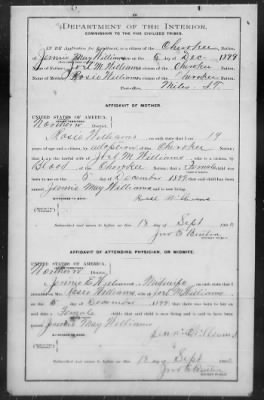 DEPARTMENT OF THE INTERIOR.
COMMISSION TO THE FIVE CIVILIZED TRIBES.
Cherokee Nation,
Jennie May Williams, born on the 5 day of Dec 1899
Name of Father: Joel M Williams, a citizen of the Cherokee Nation.
Name of Mother: Rosie Williams, a citizen of the Cherokee Nation.
Postoffice, Miles I.T.
AFFIDAVIT OF MOTHER.
UNITED STATES OF AMERICA,
Northern District.
I, Rosie Williams, on oath state that I am 19
years of age and a citizen, by adoption of the Cherokee Nation,
that I am the lawful wife of Joel M Williams, who is a citizen, by
Blood of the Cherokee Nation; that a Female
was born to me on the 5 day of December 1899; that said child has been
named Jennie May Williams, and is now living.
Rose Williams
Subscribed and sworn to before me this 18 day of Sept
NOTARY PUBLIC.
AFFIDAVIT OF ATTENDING PHYSICIAN, OR MIDWIFE.
UNITED STATES OF AMERICA,
Northern District.
I, Jennie E Williams, a Midwife, on oath state that I
attended on Mrs. Rosie Williams, wife of Joel M Williams on the
5 day of December 1899; that there was born to her on said
date a Female child; that said child is now living and is said to have been
named Jennie May Williams
Subscribed and sworn to before me this 18 day of Sept
NOTARY PUBLIC.